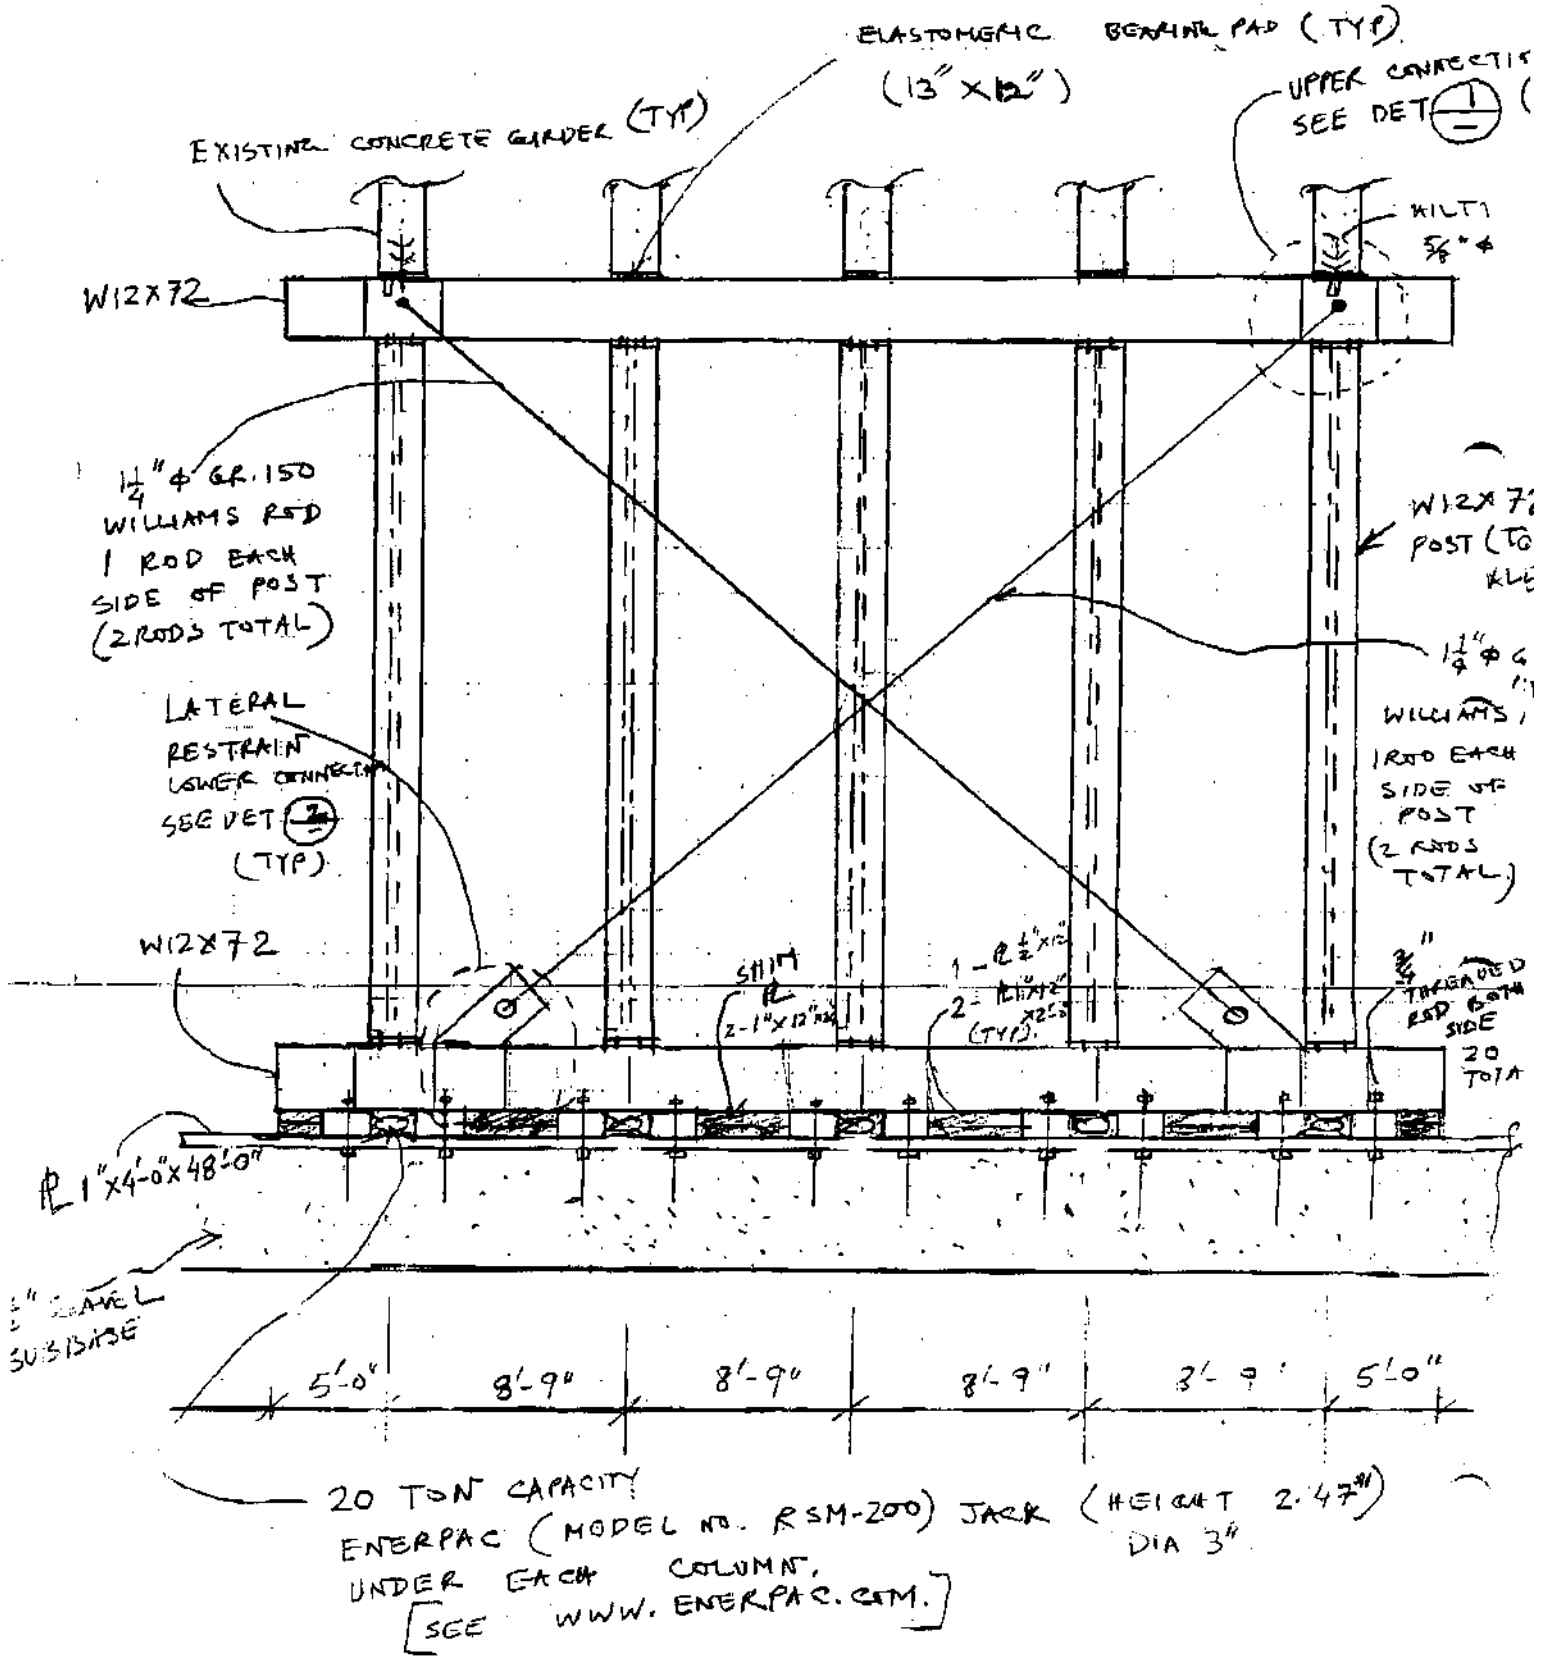 ELASTOMERIC BEARING PAD (TYP)
(13" X 12")
UPPER CONNECTI
SEE DET 1 (
EXISTING CONCRETE GIRDER (TYP)
HILTI
5/8" ϕ
W12X72
1 1/4" ϕ GR.150
WILLIAMS ROD
1 ROD EACH
SIDE OF POST
(2 RODS TOTAL)
W12X72
POST (TO
1 1/4" ϕ G
WILLIAMS
1 ROD EACH
SIDE OF
POST
(2 RODS
TOTAL)
LATERAL
RESTRAIN
LOWER CONNECTION
SEE DET 2
(TYP)
W12X72
SHIM
PL
2-1"X12"
1 - PL 1/2"X12"
2 - PL 1"X12"
(TYP).
3/4"
THREADED
ROD BOTH
SIDE
20
TOTA
PL 1"X4'-0"X48'-0"
SUBBASE
5'-0" 8'-9" 8'-9" 8'-9" 8'-9" 5'-0"
20 TON CAPACITY
ENERPAC (MODEL NO. RSM-200) JACK (HEIGHT 2.47")
DIA 3"
UNDER EACH COLUMN.
[SEE WWW.ENERPAC.COM.]